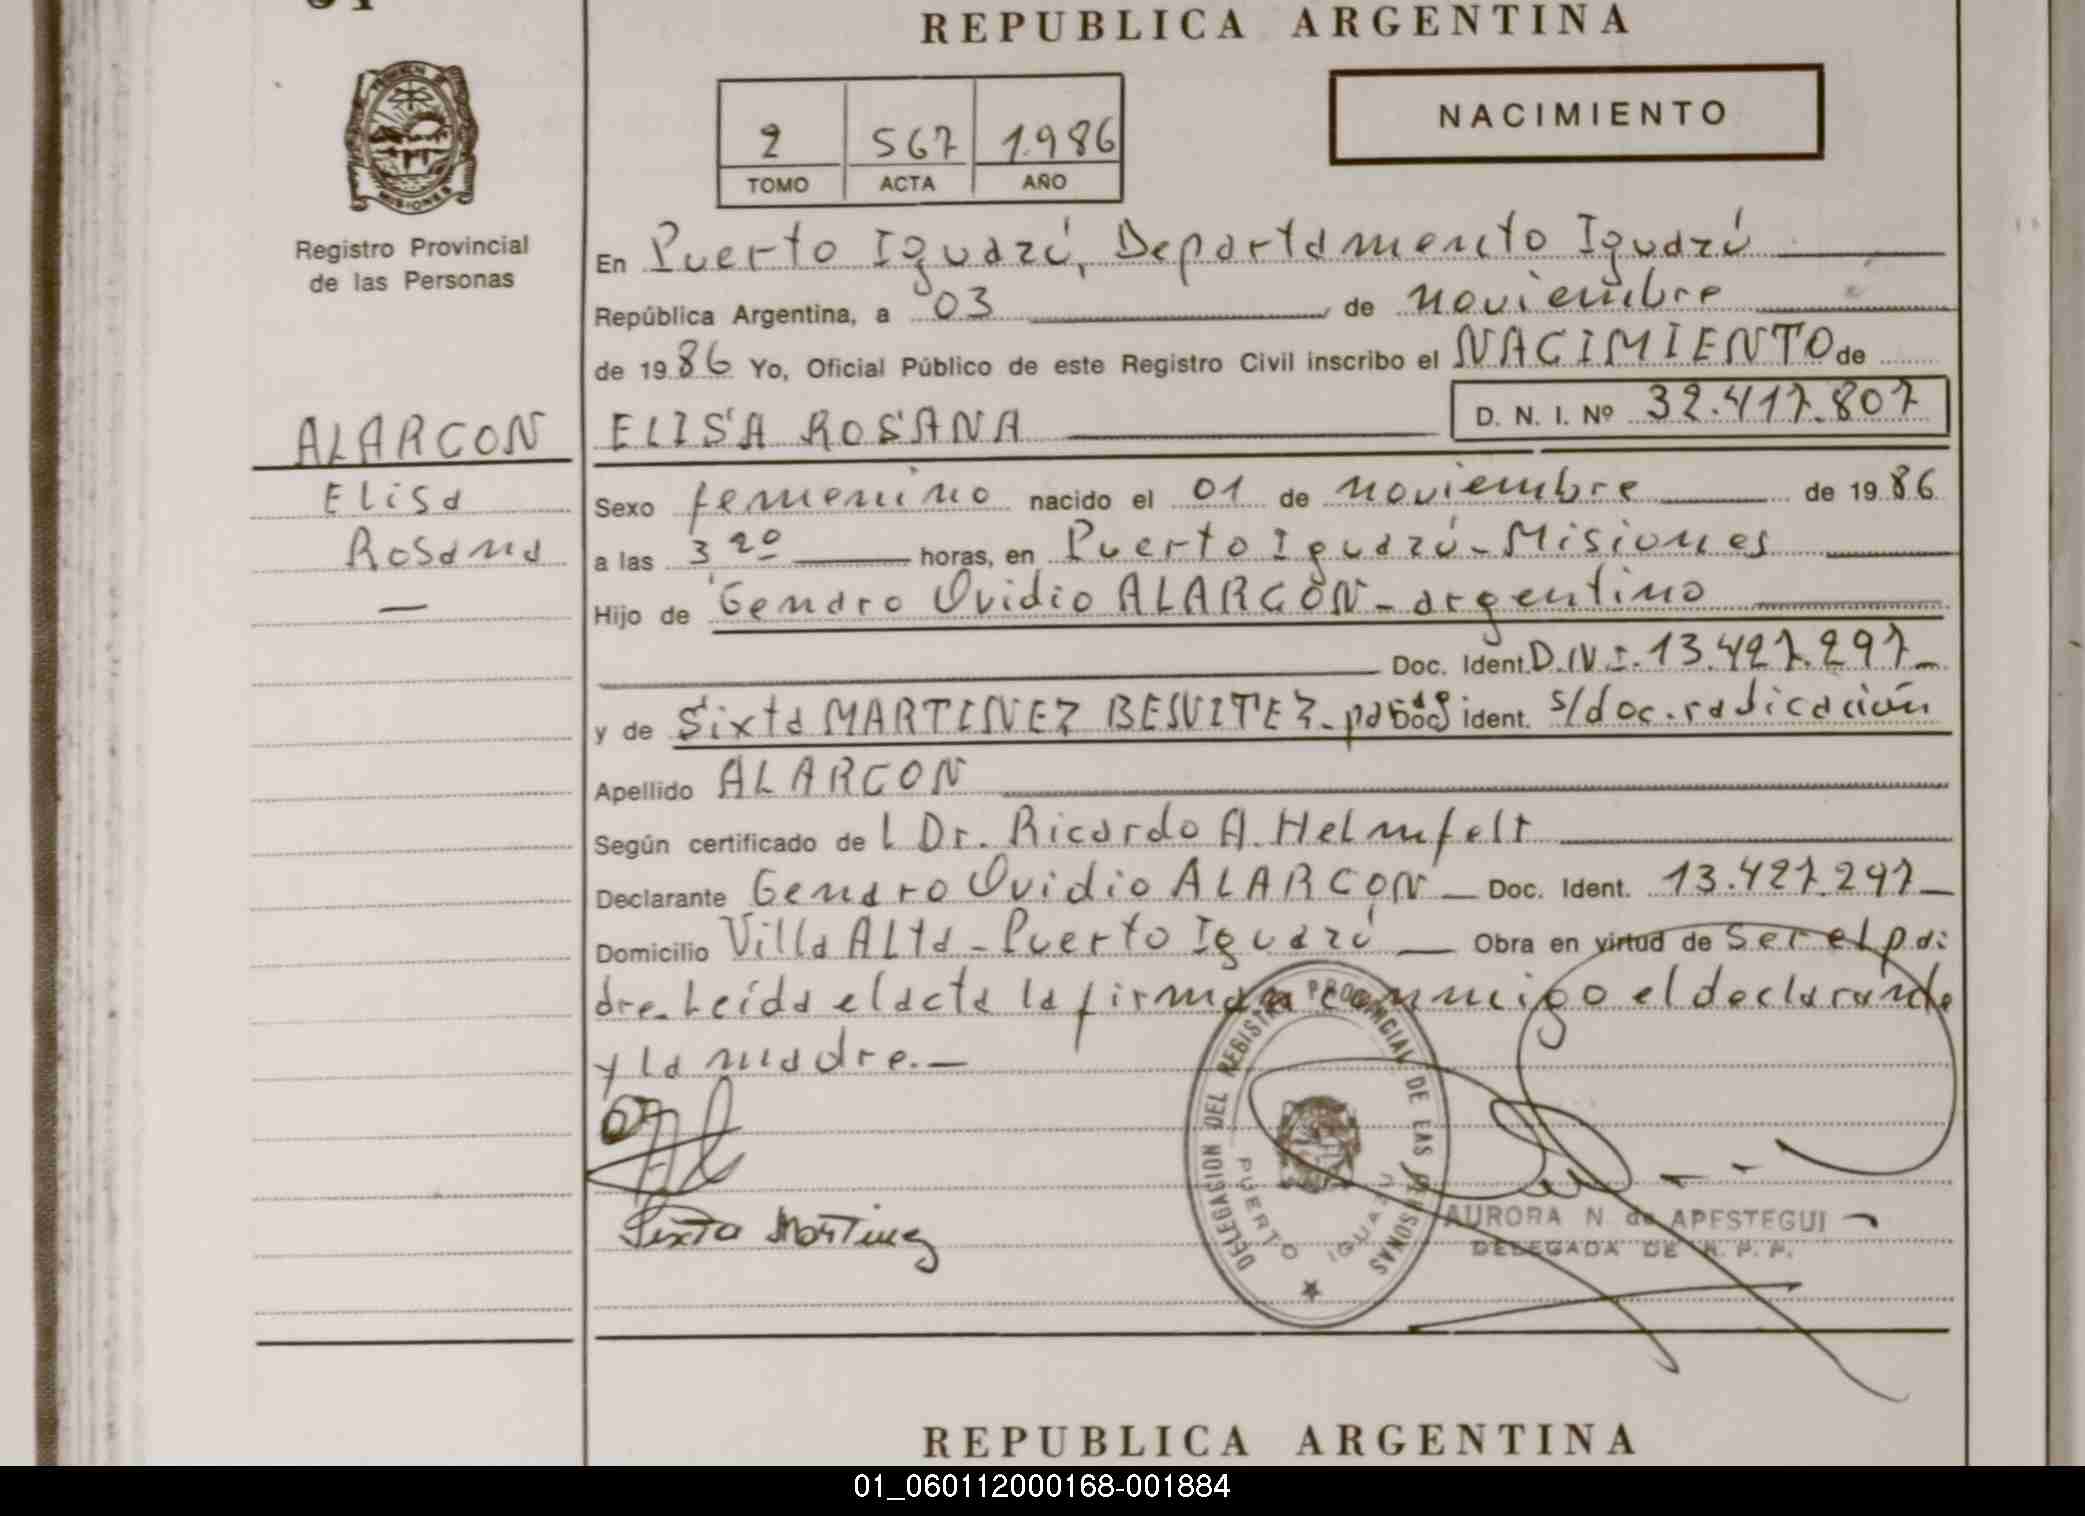 REPUBLICA ARGENTINA
NACIMIENTO
2 567 1986
TOMO ACTA AÑO
MISIONES
Registro Provincial
de las Personas
En Puerto Iguazú, Departamento Iguazú
República Argentina, a 03 de noviembre
de 1986 Yo, Oficial Público de este Registro Civil inscribo el NACIMIENTO de
ALARCON ELISA ROSANA D. N. I. Nº 32.417.807
Elisa
Sexo femenino nacido el 01 de noviembre de 1986
Rosana
a las 3 20 horas, en Puerto Iguazú - Misiones
Hijo de Genaro Ovidio ALARCON - argentino
Doc. Ident. D.N.I. 13.427.297 -
y de Sixta MARTINEZ BENITEZ - Doc. Ident. s/doc. radicación
Apellido ALARCON
Según certificado de l Dr. Ricardo A. Helmfelt
Declarante Genaro Ovidio ALARCON - Doc. Ident. 13.427.297 -
Domicilio Villa Alta - Puerto Iguazú - Obra en virtud de ser el pa-
dre. Leída el acta la firman conmigo el declarante
y la madre. -
DELEGACION DEL REGISTRO PROVINCIAL DE LAS PERSONAS
PUERTO IGUAZU
Sixta Martinez
AURORA N. de APESTEGUI
DELEGADA DE R. P. P.
REPUBLICA ARGENTINA
01_060112000168-001884